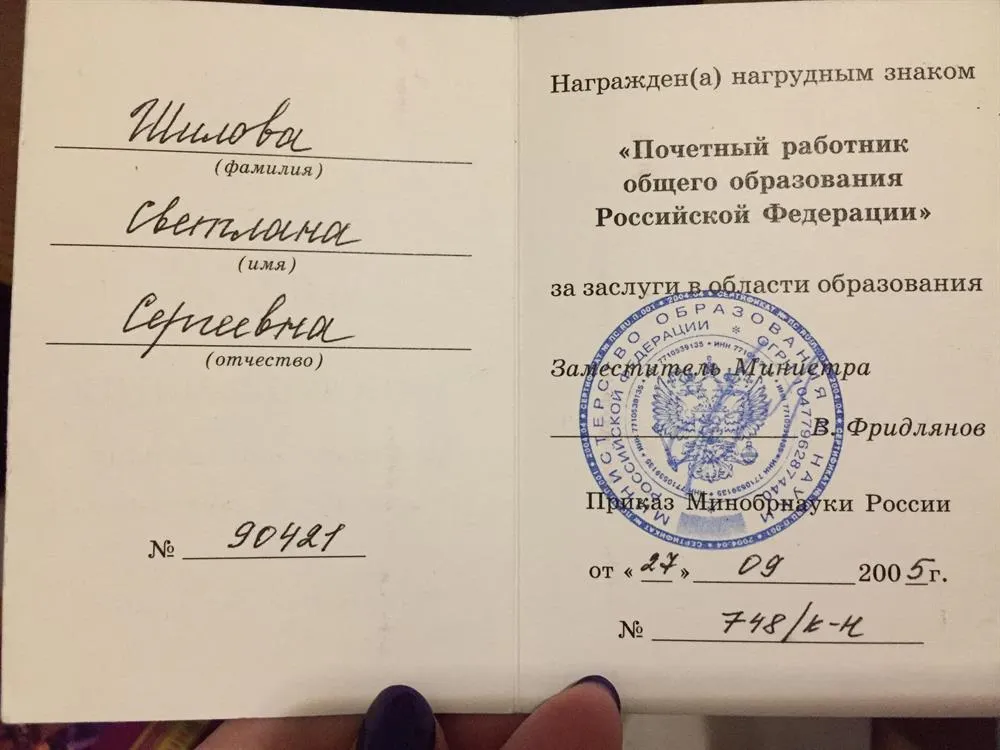 Шилова
(фамилия)
Светлана
(имя)
Сергеевна
(отчество)
№ 90421
Награжден(а) нагрудным знаком
«Почетный работник
общего образования
Российской Федерации»
за заслуги в области образования
Заместитель Министра
В. Фридлянов
Приказ Минобрнауки России
от « 27 » 09 2005 г.
№ 748/к-н
МИНИСТЕРСТВО ОБРАЗОВАНИЯ И НАУКИ
РОССИЙСКОЙ ФЕДЕРАЦИИ
* ОГРН 1047796287440
* ИНН 7710539135 * ИНН 7710539135
* 2004.04 * СЕРТИФИКАТ №